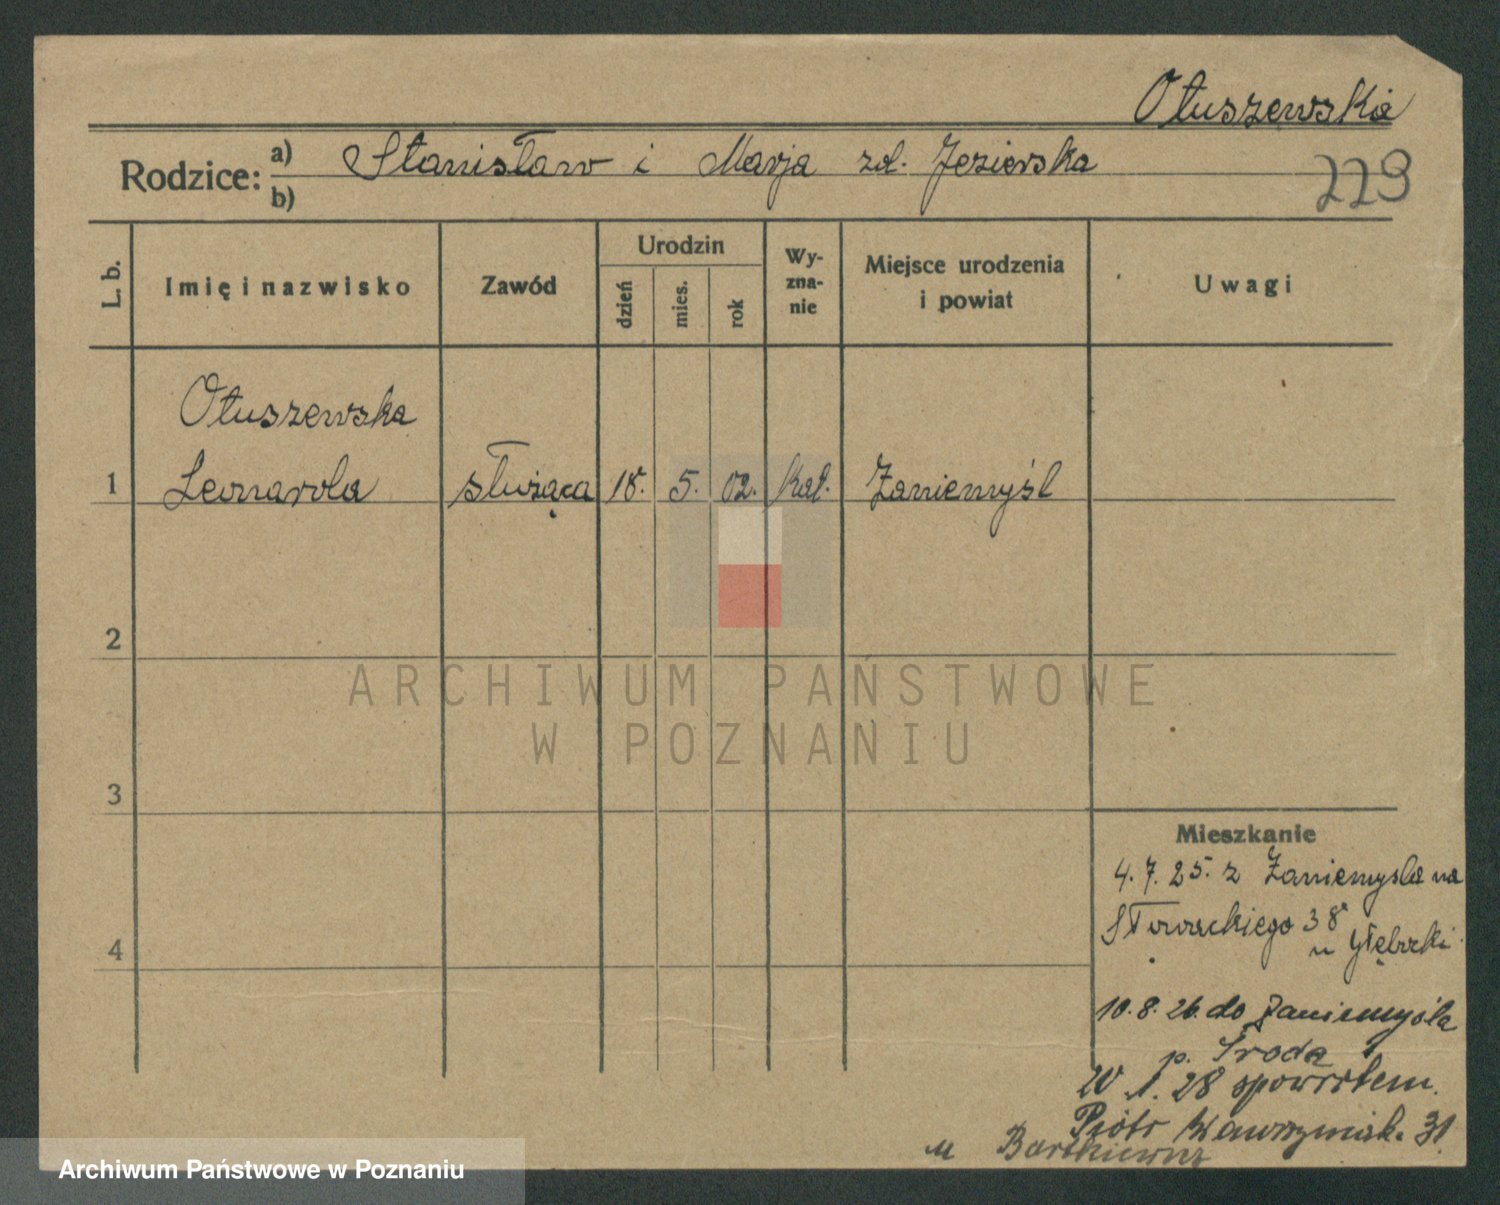 Otuszewska
Rodzice: a) Stanisław i Marja zd. Jezierska
b)
223
L. b.
Imię i nazwisko
Zawód
Urodzin
dzień
mies.
rok
Wy-
zna-
nie
Miejsce urodzenia
i powiat
Uwagi
Otuszewska
1 Leonarda służąca 18. 5. 02. kat. Zaniemyśl
2
3
4
Mieszkanie
4.7.25. z Zaniemysla na
Słowackiego 38
u
10.8.26. do Zaniemyśla
p. Środa
1. 28 spowrotem.
Piotr Wawrzyniak. 31
u
ARCHIWUM PAŃSTWOWE
W POZNANIU
Archiwum Państwowe w Poznaniu